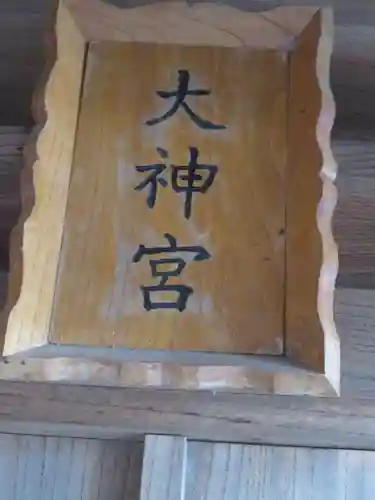 大神宮